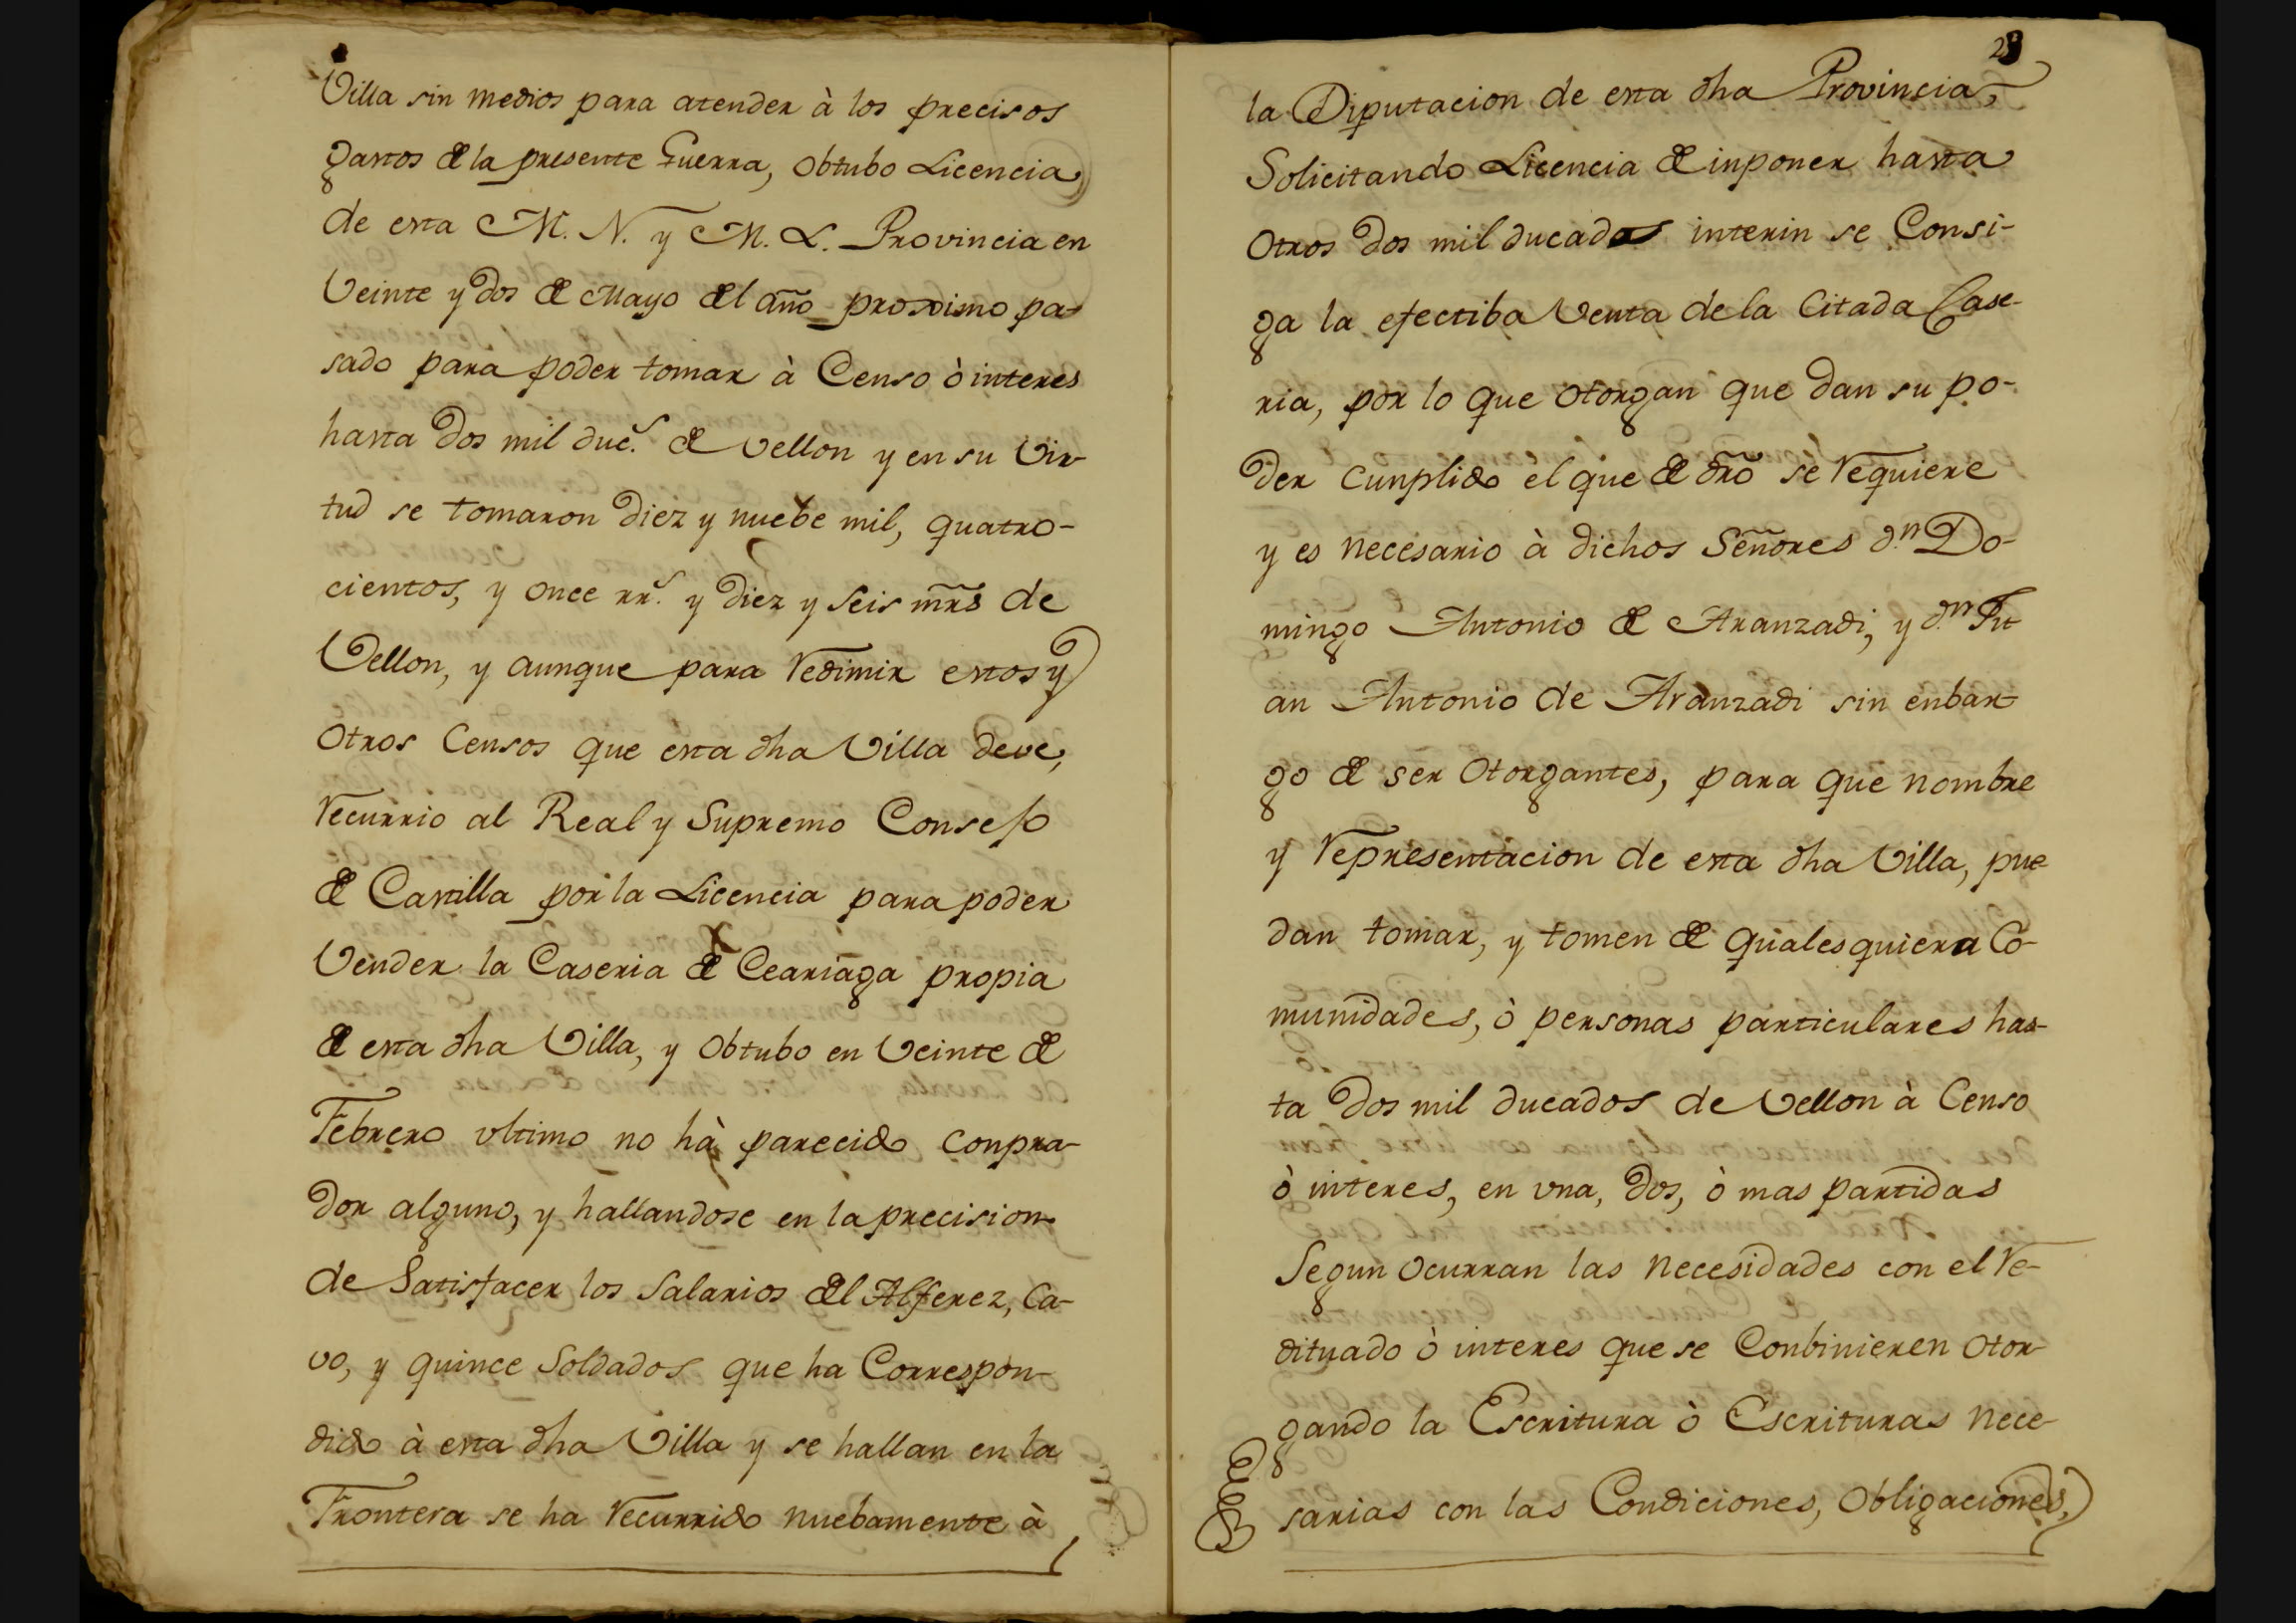 Villa sin medios para atender à los precisos
gastos de la presente Guerra, obtubo Licencia
de esta M. N. y M. L. Provincia en
Veinte y dos de Mayo del año proximo pa-
sado para poder tomar à Censo ò interes
hasta dos mil duc.s de vellon y en su Vir-
tud se tomaron diez y nuebe mil, quatro-
cientos, y once rr.s y diez y seis mrs de
Vellon, y aunque para redimir estos y
otros Censos que esta dha Villa deve,
recurrio al Real y Supremo Consejo
de Castilla por la Licencia para poder
Vender la Caseria de Ceariaga propia
de esta dha Villa, y obtubo en Veinte de
Febrero vltimo no hà parecido conpra-
dor alguno, y hallandose en la precision
de Satisfacer los Salarios del Alferez, Ca-
vo, y quince Soldados que ha Correspon-
dido à esta dha Villa y se hallan en la
Frontera se ha recurrido nuebamente à
23
la Diputacion de esta dha Provincia,
Solicitando Licencia de inponer hasta
otros dos mil ducados interin se Consi-
ga la efectiba Venta de la Citada Case-
ria, por lo que otorgan que dan su po-
der cunplido el que de dro se requiere
y es necesario à dichos Señores d.n Do-
mingo Antonio de Aranzadi, y d.n Ju-
an Antonio de Aranzadi sin enbar-
go de ser otorgantes, para que nombre
y representacion de esta dha Villa, pue-
dan tomar, y tomen de qualesquiera Co-
munidades, ò personas particulares has-
ta dos mil ducados de Vellon à Censo
ò interes, en vna, dos, ò mas partidas
Segun ocurran las necesidades con el re-
dituado ò interes que se Conbinieren otor-
gando la Escritura ò Escrituras nece-
sarias con las Condiciones, obligaciones,